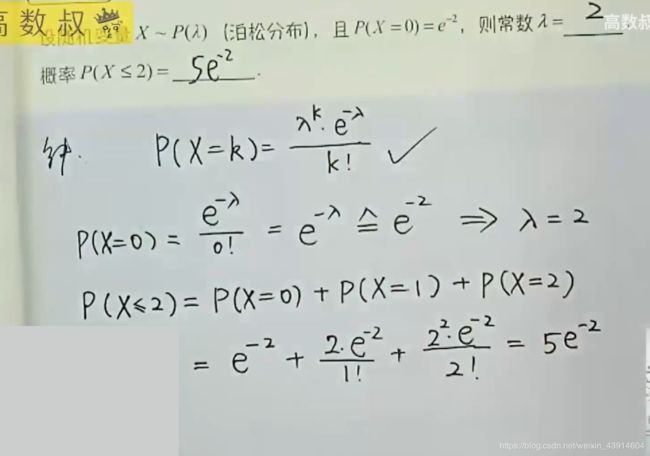 高数叔
设随机变量 X ~ P(λ) (泊松分布), 且 P(X = 0) = e⁻², 则常数 λ = 2 高数叔
概率 P(X ≤ 2) = 5e⁻² .
P(X=k) = λᵏ·e^-λ / k! ✓
P(X=0) = e^-λ / 0! = e^-λ ≙ e⁻² ⇒ λ = 2
P(X≤2) = P(X=0) + P(X=1) + P(X=2)
= e⁻² + 2·e⁻² / 1! + 2²·e⁻² / 2! = 5e⁻²
https://blog.csdn.net/weixin_43914604